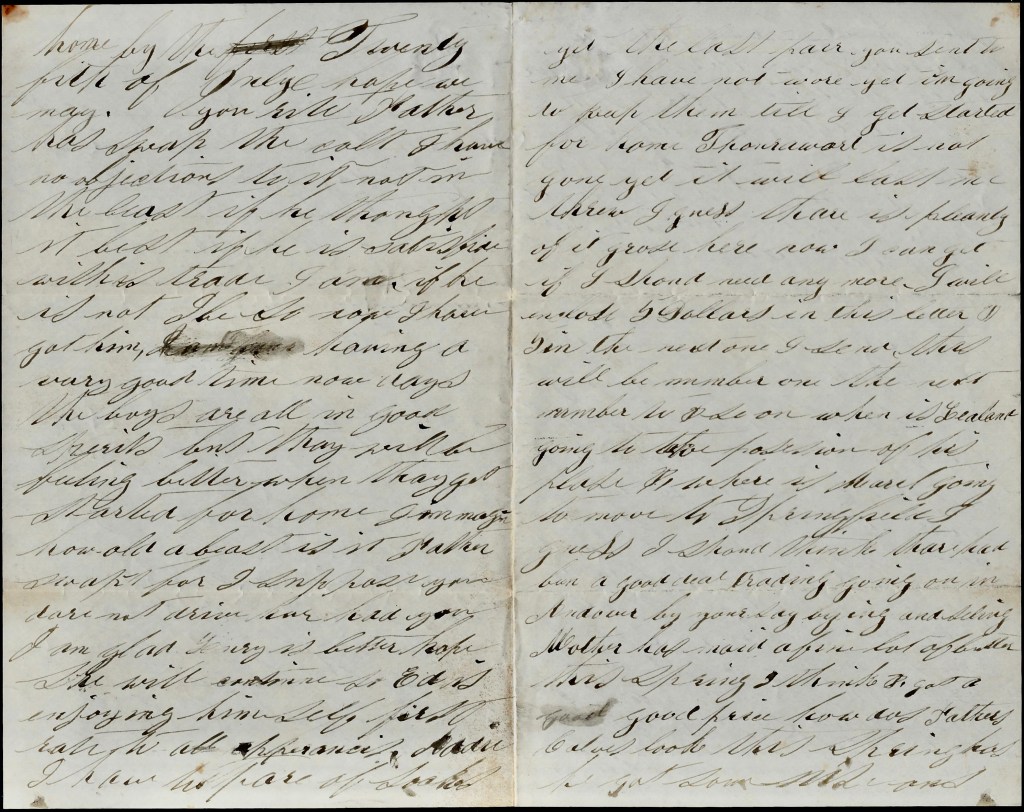 home by the first Twenty
fifth of hope we
may. you sed Father
has swap the colt I have
no objections to it not in
the least if he thought
it best if he is sattisfide
with is trade I am, if he
is not I be so nope I have
got him, having a
vary good time now days
the boys are all in good
sperits but thay will be
feeling better when thay get
started for home
how old a beast is it Father
swapt for I suppose you
dare not drive her had you
I am glad Henry is better hope
he will continue so Ed is
enjoying him self first
rate to all apperancis. Addie
I have to pare of socks
yet the last pair you sent to
me I have not wore yet im going
to keap them till I get started
for home Thourawort is not
gone yet it will last me
threw I guess thare is pleanty
of it grose here now I can get
if I should need any more. I will
inclose 5 Dollars in this letter &
5 in the next one I send, this
will be number one the next
number to & so on when is Zealand
going to take posesion of his
plase & where is going
to move to Springfield I
guess I should think thar had
ben a good deal trading going on in
Andover by your say bying and seling
Mother has maid a fine lot of butter
this Spring I think & got a
good good price how dos Fathers
calves look this Spring has
he got some nise ones